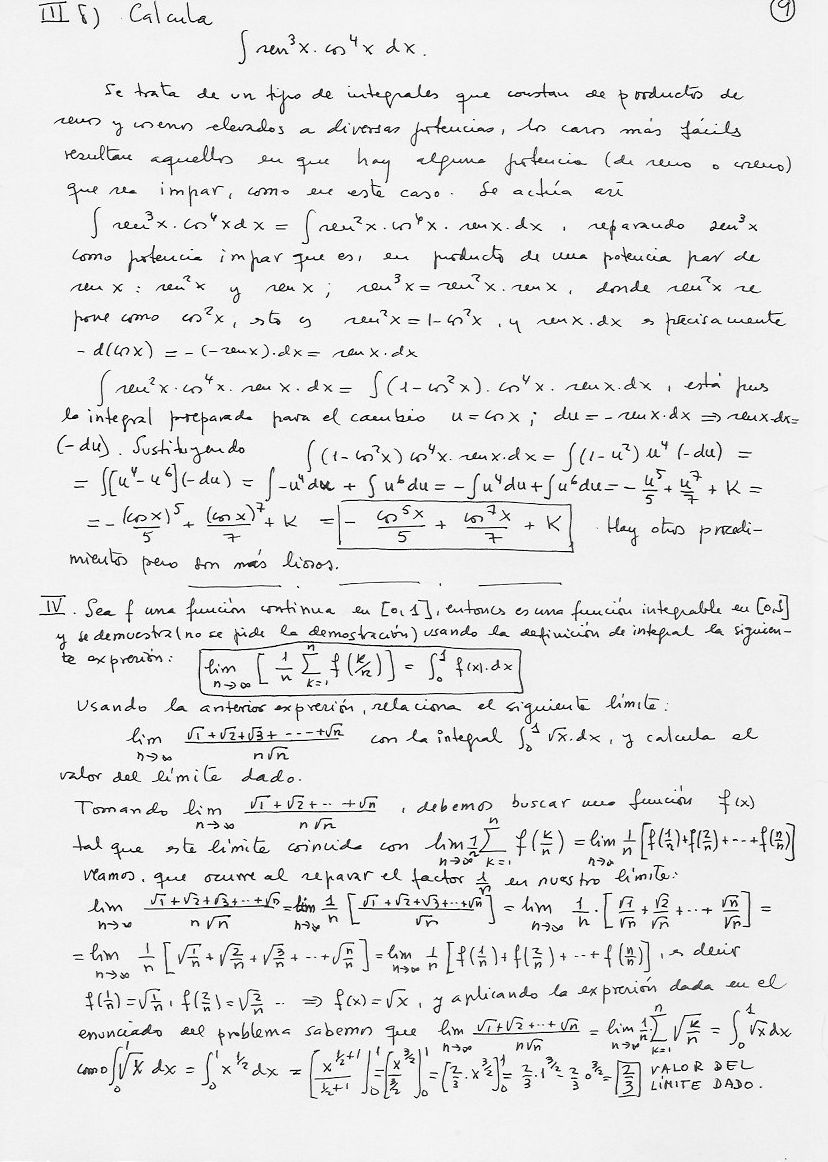 III 8) Calcula 9
∫ sen³x · cos⁴x dx.
Se trata de un tipo de integrales que constan de productos de
senos y cosenos elevados a diversas potencias, los casos más fáciles
resultan aquellos en que hay alguna potencia (de seno o coseno)
que sea impar, como en este caso. Se actúa así
∫ sen³x · cos⁴x dx = ∫ sen²x · cos⁴x · senx · dx, separando sen³x
como potencia impar que es, en producto de una potencia par de
sen x : sen²x y sen x ; sen³x = sen²x · senx, donde sen²x se
pone como cos²x, esto es sen²x = 1-cos²x, y senx.dx es precisamente
-d(cosx) = -(-senx).dx = senx.dx
∫ sen²x · cos⁴x · senx · dx = ∫(1-cos²x) · cos⁴x · senx.dx, está pues
la integral preparada para el cambio u = cosx ; du = -senx.dx ⇒ senx.dx=
(-du). Sustituyendo ∫(1-cos²x) cos⁴x · senx.dx = ∫(1-u²) u⁴ (-du) =
= ∫[u⁴-u⁶](-du) = ∫-u⁴du + ∫u⁶du = -∫u⁴du + ∫u⁶du = - u⁵/5 + u⁷/7 + K =
= - (cosx)⁵/5 + (cosx)⁷/7 + K = - cos⁵x/5 + cos⁷x/7 + K . Hay otros procedi-
mientos pero son más liosos.
IV. Sea f una función continua en [0,1], entonces es una función integrable en [0,1]
y se demuestra (no se pide la demostración) usando la definición de integral la siguien-
te expresión: lim n→∞ [ 1/n Σ k=1 n f(k/n) ] = ∫₀¹ f(x).dx
Usando la anterior expresión, relaciona el siguiente límite:
lim n→∞ (√1+√2+√3+----+√n)/(n√n) con la integral ∫₀¹ √x.dx, y calcula el
valor del límite dado.
Tomando lim n→∞ (√1+√2+···+√n)/(n√n), debemos buscar una función f(x)
tal que este límite coincida con lim n→∞ 1/n Σ k=1 n f(k/n) = lim n→∞ 1/n [f(1/n)+f(2/n)+---+f(n/n)]
Veamos, que ocurre al separar el factor 1/n en nuestro límite:
lim n→∞ (√1+√2+√3+···+√n)/(n√n) = lim n→∞ 1/n [(√1+√2+√3+···+√n)/√n] = lim n→∞ 1/n · [√1/√n + √2/√n + ··· + √n/√n] =
= lim n→∞ 1/n [√(1/n) + √(2/n) + √(3/n) + ··· + √(n/n)] = lim n→∞ 1/n [f(1/n) + f(2/n) + ··· + f(n/n)], es decir
f(1/n) = √(1/n), f(2/n) = √(2/n) ··· ⇒ f(x) = √x, y aplicando la expresión dada en el
enunciado del problema sabemos que lim n→∞ (√1+√2+···+√n)/(n√n) = lim n→∞ 1/n Σ k=1 n √(k/n) = ∫₀¹ √x dx
como ∫₀¹ √x dx = ∫₀¹ x^(1/2) dx = [x^(1/2+1)/(1/2+1)]₀¹ = [x^(3/2)/(3/2)]₀¹ = [2/3 · x^(3/2)]₀¹ = 2/3 · 1^(3/2) - 2/3 · 0^(3/2) = 2/3 VALOR DEL
LÍMITE DADO.